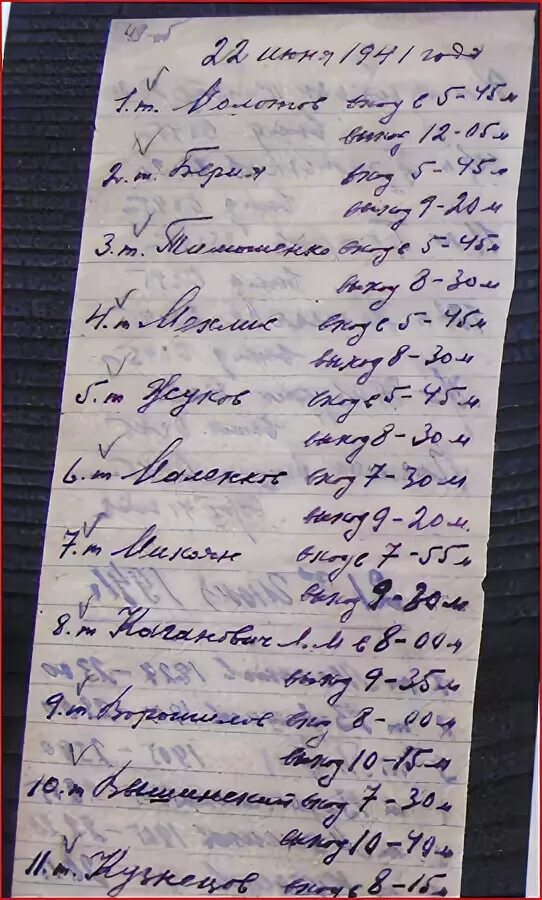 22 июня 1941 года
1. т. Молотов вход в 5-45м
выход 12-05м
2. т. Берия вход 5-45м
выход 9-20м
3. т. Тимошенко вход в 5-45м
выход 8-30м
4. т Мехлис вход в 5-45м
выход 8-30м
5. т Жуков вход в 5-45м
выход 8-30м
6. т Маленков вход 7-30м
выход 9-20м
7. т Микоян вход в 7-55м
выход 9-30м
8. т Каганович Л.М в 8-00м
выход 9-35м
9. т. Ворошилов вход 8-00м
выход 10-15м
10. т Вышинский вход 7-30м
выход 10-40м
11. т. Кузнецов вход в 8-15м